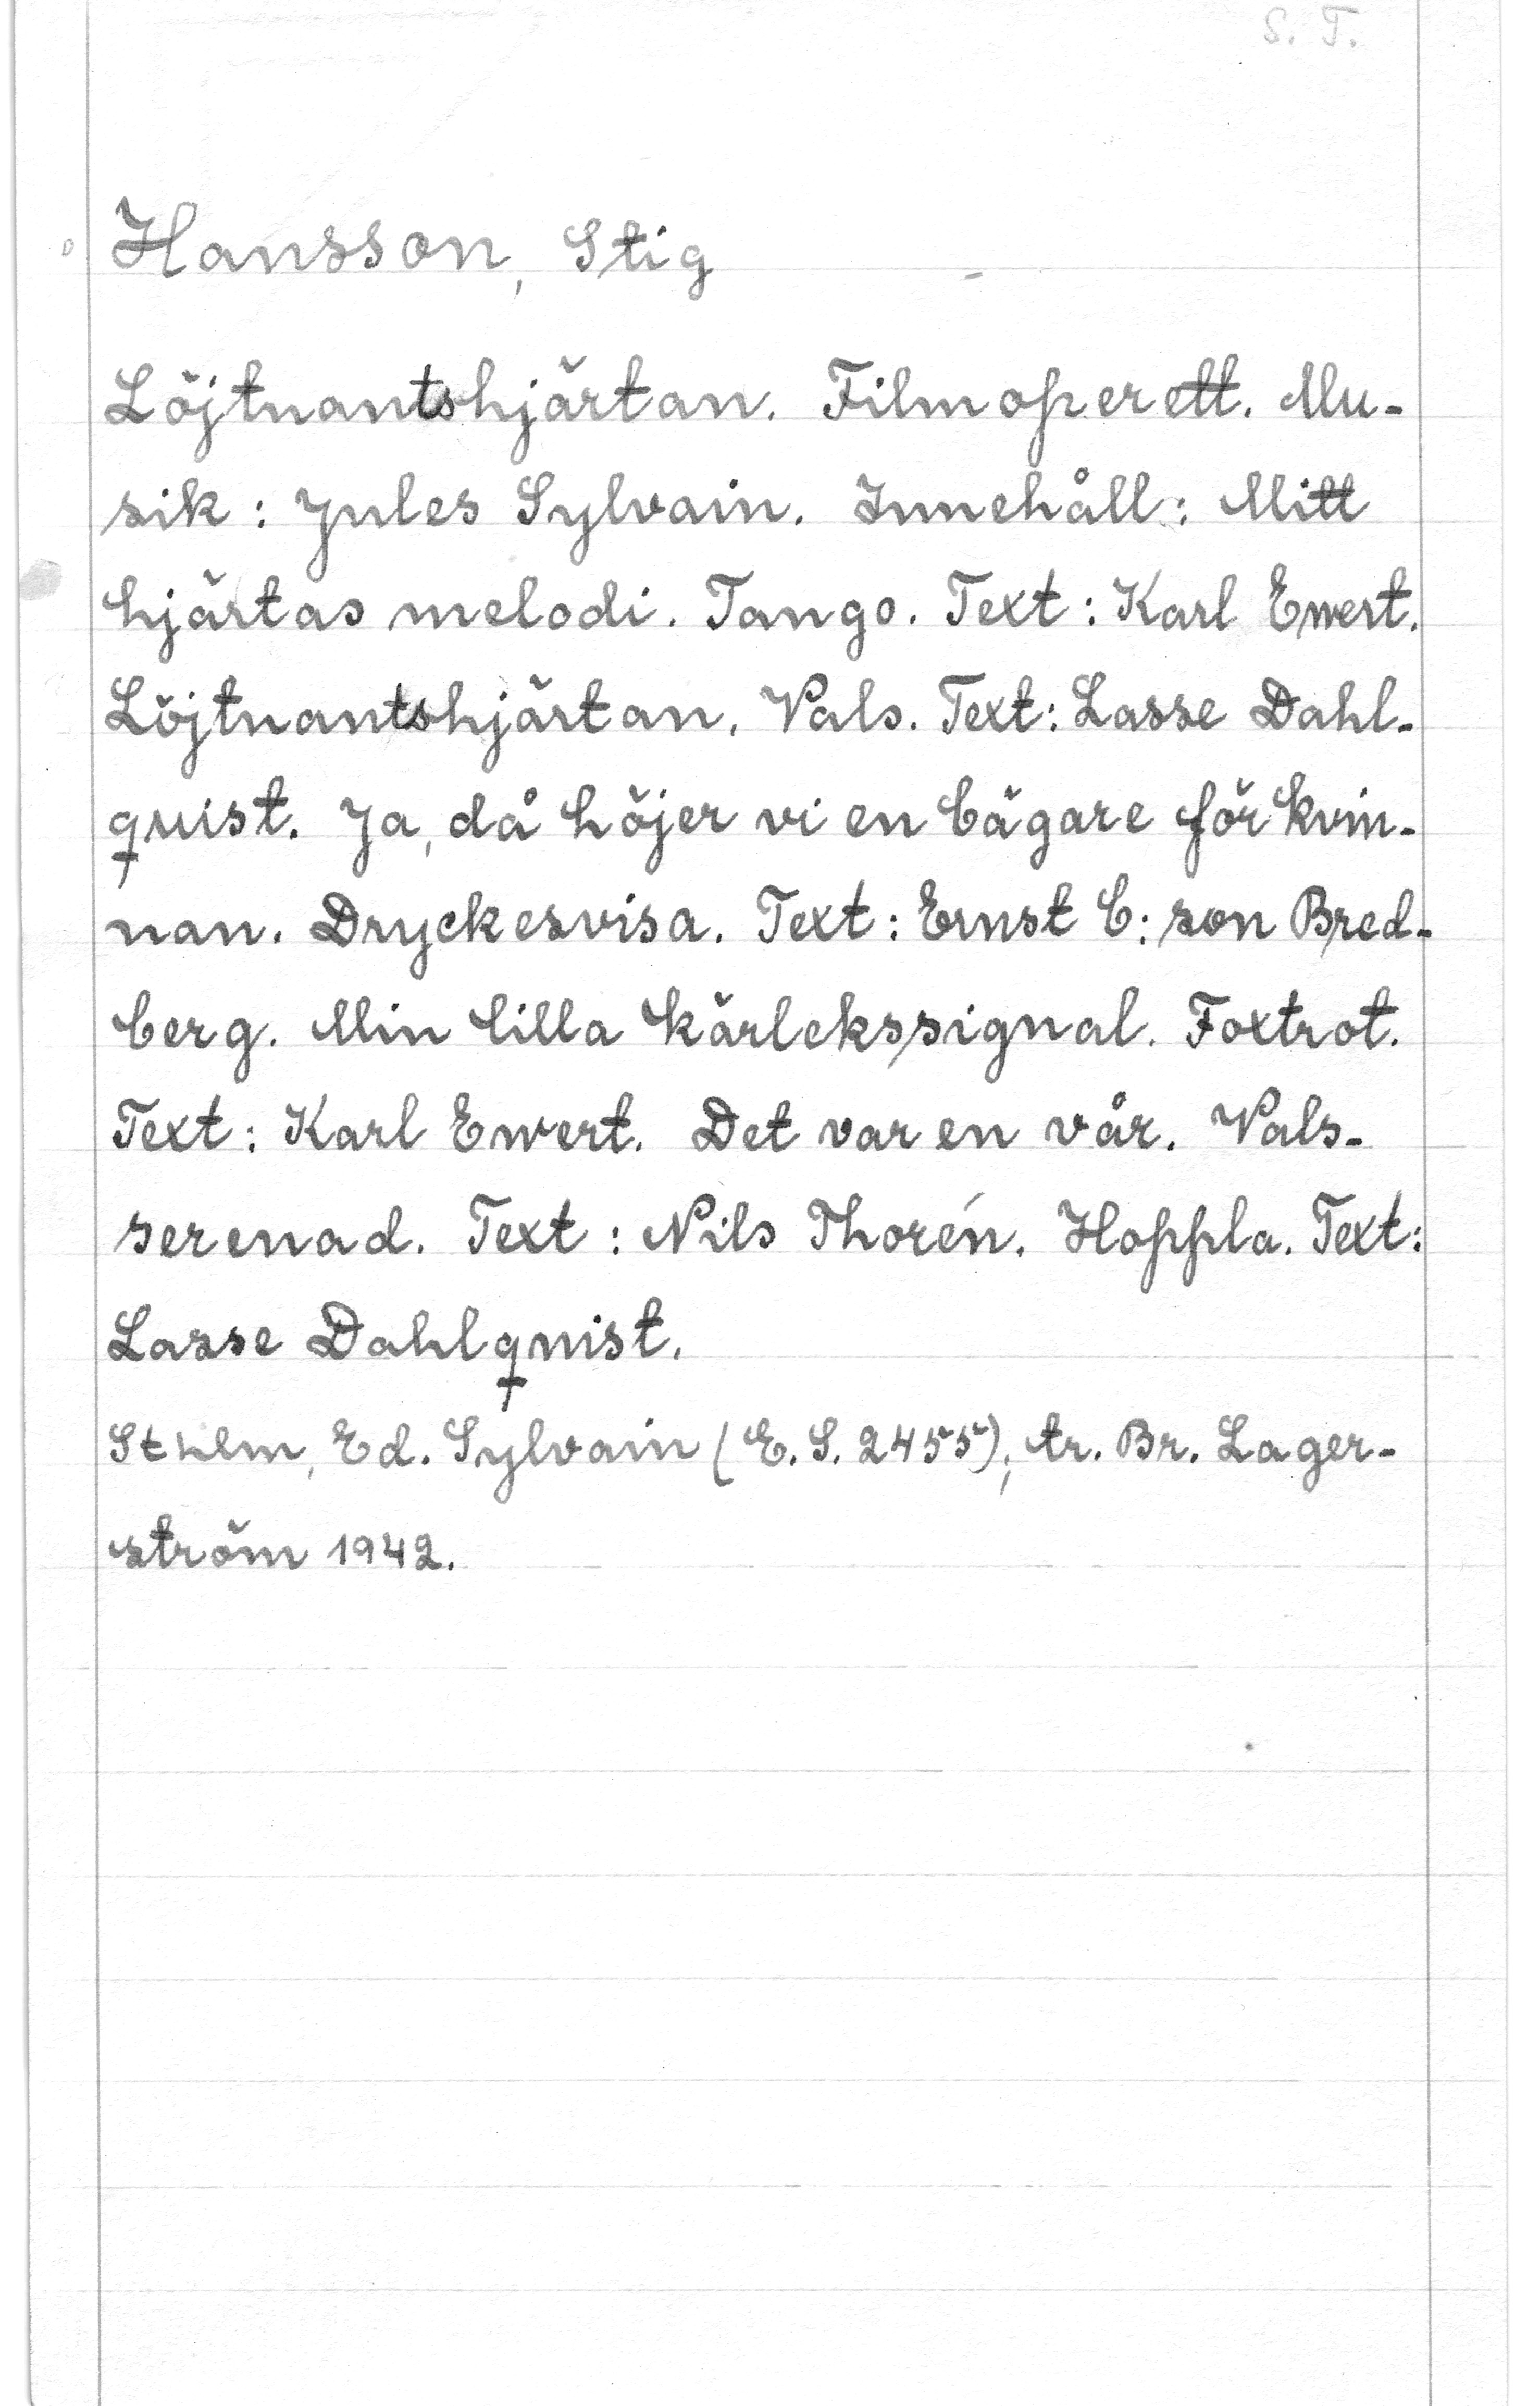 S. T.
Hansson, Stig
Löjtnantshjärtan. Filmoperett. Mu-
sik: Jules Sylvain. Innehåll: Mitt
hjärtas melodi. Tango. Text: Karl Ewert.
Löjtnantshjärtan. Vals. Text: Lasse Dahl-
quist. Ja, då höjer vi en bägare för kvin-
nan. Dryckesvisa. Text: Ernst C:son Bred-
berg. Min lilla kärlekssignal. Foxtrot.
Text: Karl Ewert. Det var en vår. Vals-
serenad. Text: Nils Thorén. Hoppla. Text:
Lasse Dahlquist.
Sthlm, Ed. Sylvain (E. S. 2455); tr. Br. Lager-
ström 1942.